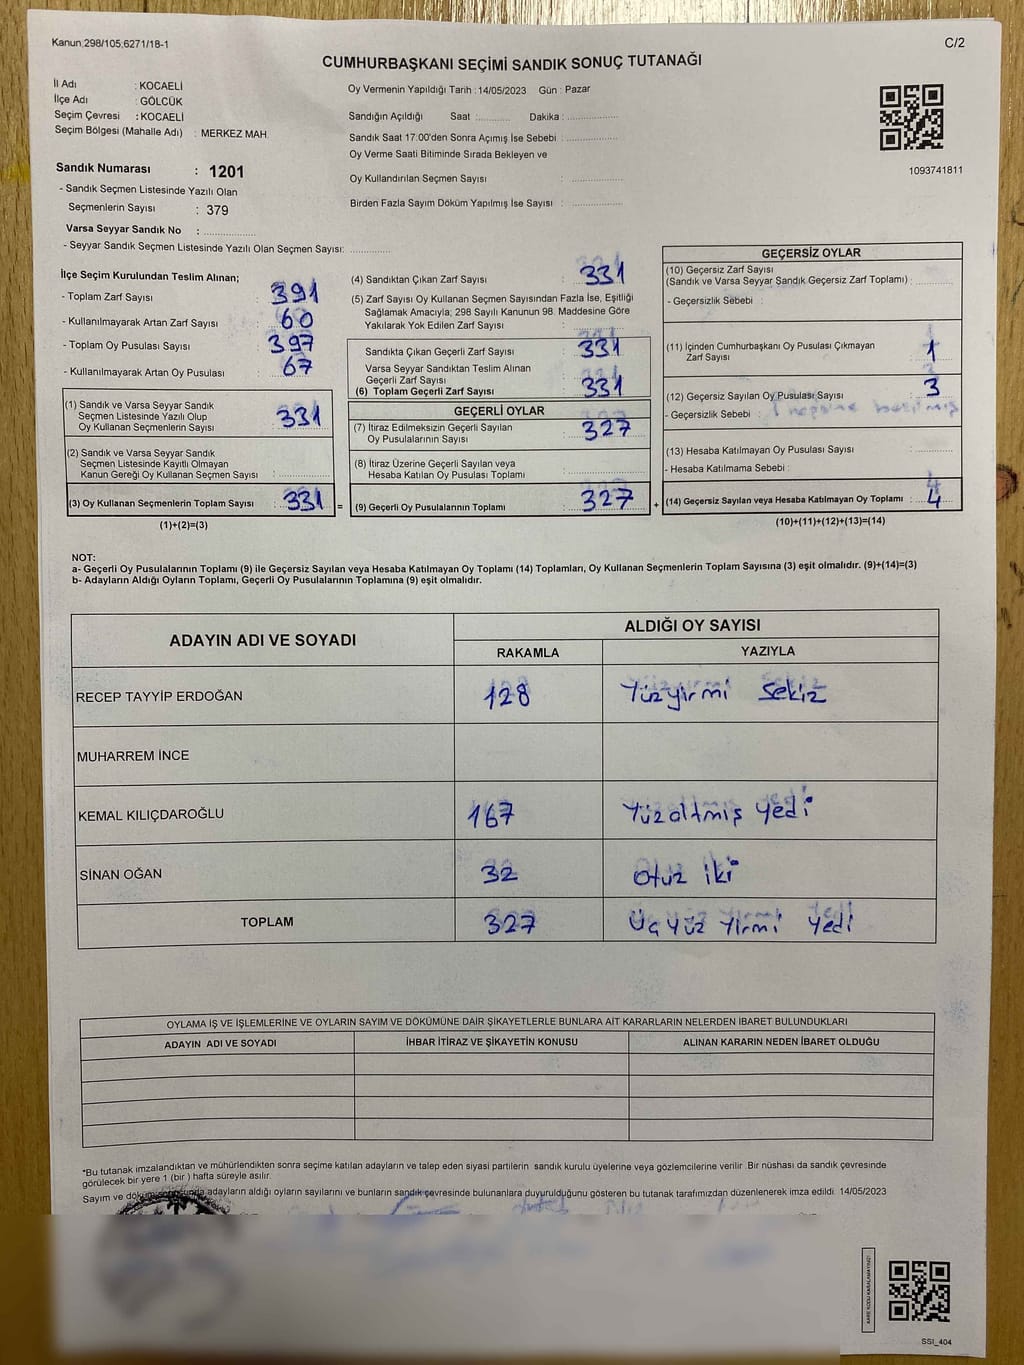 Kanun;298/105;6271/18-1
C/2
CUMHURBAŞKANI SEÇİMİ SANDIK SONUÇ TUTANAĞI
İl Adı : KOCAELİ
İlçe Adı : GÖLCÜK
Seçim Çevresi : KOCAELİ
Seçim Bölgesi (Mahalle Adı) : MERKEZ MAH.
Oy Vermenin Yapıldığı Tarih : 14/05/2023 Gün : Pazar
Sandığın Açıldığı Saat :........... Dakika :................
Sandık Saat 17:00'den Sonra Açımış İse Sebebi :................
Oy Verme Saati Bitiminde Sırada Bekleyen ve
Oy Kullandırılan Seçmen Sayısı :................
Birden Fazla Sayım Döküm Yapılmış İse Sayısı :................
1093741811
Sandık Numarası : 1201
- Sandık Seçmen Listesinde Yazılı Olan
Seçmenlerin Sayısı : 379
Varsa Seyyar Sandık No :................
- Seyyar Sandık Seçmen Listesinde Yazılı Olan Seçmen Sayısı: ............
İlçe Seçim Kurulundan Teslim Alınan;
- Toplam Zarf Sayısı : 391
- Kullanılmayarak Artan Zarf Sayısı : 60
- Toplam Oy Pusulası Sayısı : 397
- Kullanılmayarak Artan Oy Pusulası : 67
(1) Sandık ve Varsa Seyyar Sandık
Seçmen Listesinde Yazılı Olup
Oy Kullanan Seçmenlerin Sayısı : 331
(2) Sandık ve Varsa Seyyar Sandık
Seçmen Listesinde Kayıtlı Olmayan
Kanun Gereği Oy Kullanan Seçmen Sayısı :................
(3) Oy Kullanan Seçmenlerin Toplam Sayısı : 331 =
(1)+(2)=(3)
(4) Sandıktan Çıkan Zarf Sayısı : 331
(5) Zarf Sayısı Oy Kullanan Seçmen Sayısından Fazla İse, Eşitliği
Sağlamak Amacıyla; 298 Sayılı Kanunun 98. Maddesine Göre
Yakılarak Yok Edilen Zarf Sayısı :................
Sandıkta Çıkan Geçerli Zarf Sayısı : 331
Varsa Seyyar Sandıktan Teslim Alınan
Geçerli Zarf Sayısı :
(6) Toplam Geçerli Zarf Sayısı : 331
GEÇERLİ OYLAR
(7) İtiraz Edilmeksizin Geçerli Sayılan
Oy Pusulalarının Sayısı : 327
(8) İtiraz Üzerine Geçerli Sayılan veya
Hesaba Katılan Oy Pusulası Toplamı :................
(9) Geçerli Oy Pusulalarının Toplamı : 327 +
GEÇERSİZ OYLAR
(10) Geçersiz Zarf Sayısı
(Sandık ve Varsa Seyyar Sandık Geçersiz Zarf Toplamı) :............
- Geçersizlik Sebebi :
(11) İçinden Cumhurbaşkanı Oy Pusulası Çıkmayan
Zarf Sayısı : 1
(12) Geçersiz Sayılan Oy Pusulası Sayısı : 3
- Geçersizlik Sebebi :
(13) Hesaba Katılmayan Oy Pusulası Sayısı :............
- Hesaba Katılmama Sebebi :
(14) Geçersiz Sayılan veya Hesaba Katılmayan Oy Toplamı : 4
(10)+(11)+(12)+(13)=(14)
NOT:
a- Geçerli Oy Pusulalarının Toplamı (9) ile Geçersiz Sayılan veya Hesaba Katılmayan Oy Toplamı (14) Toplamları, Oy Kullanan Seçmenlerin Toplam Sayısına (3) eşit olmalıdır. (9)+(14)=(3)
b- Adayların Aldığı Oyların Toplamı, Geçerli Oy Pusulalarının Toplamına (9) eşit olmalıdır.
ADAYIN ADI VE SOYADI
ALDIĞI OY SAYISI
RAKAMLA YAZIYLA
RECEP TAYYİP ERDOĞAN 128 Yüzyirmi sekiz
MUHARREM İNCE
KEMAL KILIÇDAROĞLU 167 Yüzaltmış yedi
SİNAN OĞAN 32 Otuz iki
TOPLAM 327 Üçyüz yirmi yedi
OYLAMA İŞ VE İŞLEMLERİNE VE OYLARIN SAYIM VE DÖKÜMÜNE DAİR ŞİKAYETLERLE BUNLARA AİT KARARLARIN NELERDEN İBARET BULUNDUKLARI
ADAYIN ADI VE SOYADI İHBAR İTİRAZ VE ŞİKAYETİN KONUSU ALINAN KARARIN NEDEN İBARET OLDUĞU
*Bu tutanak imzalandıktan ve mühürlendikten sonra seçime katılan adayların ve talep eden siyasi partilerin sandık kurulu üyelerine veya gözlemcilerine verilir .Bir nüshası da sandık çevresinde
görülecek bir yere 1 (bir ) hafta süreyle asılır.
Sayım ve döküm sonunda adayların aldığı oyların sayılarını ve bunların sandık çevresinde bulunanlara duyurulduğunu gösteren bu tutanak tarafımızdan düzenlenerek imza edildi. 14/05/2023
SSI_404